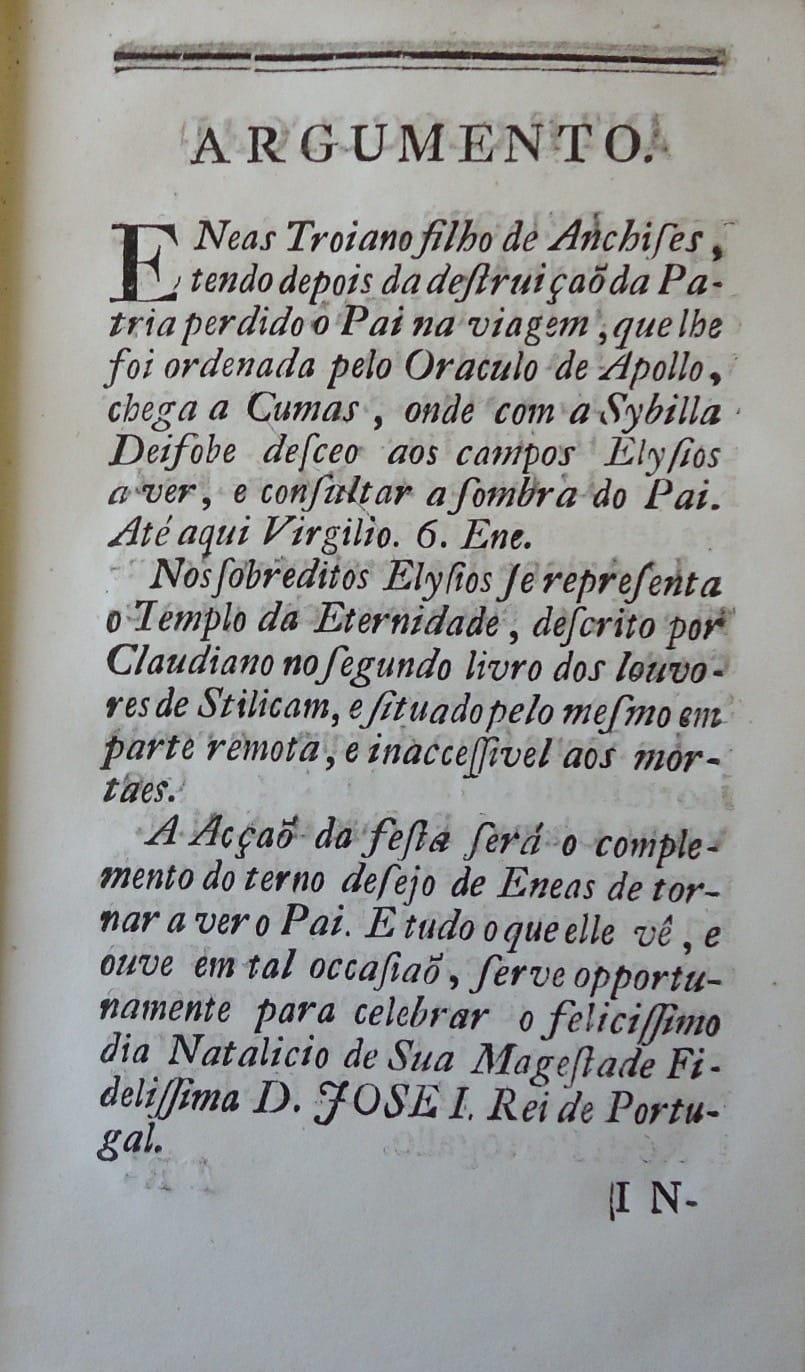 ARGUMENTO.
ENeas Troiano filho de Anchiſes,
tendo depois da deſtruiçaõ da Pa-
tria perdido o Pai na viagem, que lhe
foi ordenada pelo Oraculo de Apollo,
chega a Cumas, onde com a Sybilla
Deifobe deſceo aos campos Elyſios
a ver, e conſultar a ſombra do Pai.
Até aqui Virgilio. 6. Ene.
Nos ſobreditos Elyſios ſe repreſenta
o Templo da Eternidade, deſcrito por
Claudiano no ſegundo livro dos louvo-
res de Stilicam, e ſituado pelo meſmo em
parte remota, e inacceſſivel aos mor-
taes.
A Acçaõ da feſta ſerá o comple-
mento do terno deſejo de Eneas de tor-
nar a ver o Pai. E tudo o que elle vê, e
ouve em tal occaſiaõ, ſerve opportu-
namente para celebrar o feliciſſimo
dia Natalicio de Sua Mageſtade Fi-
deliſſima D. JOSE I. Rei de Portu-
gal.
IN-